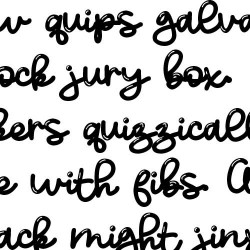 w quips galva
ock jury box.
kers quizzicall
e with fibs. A
ack might jinx